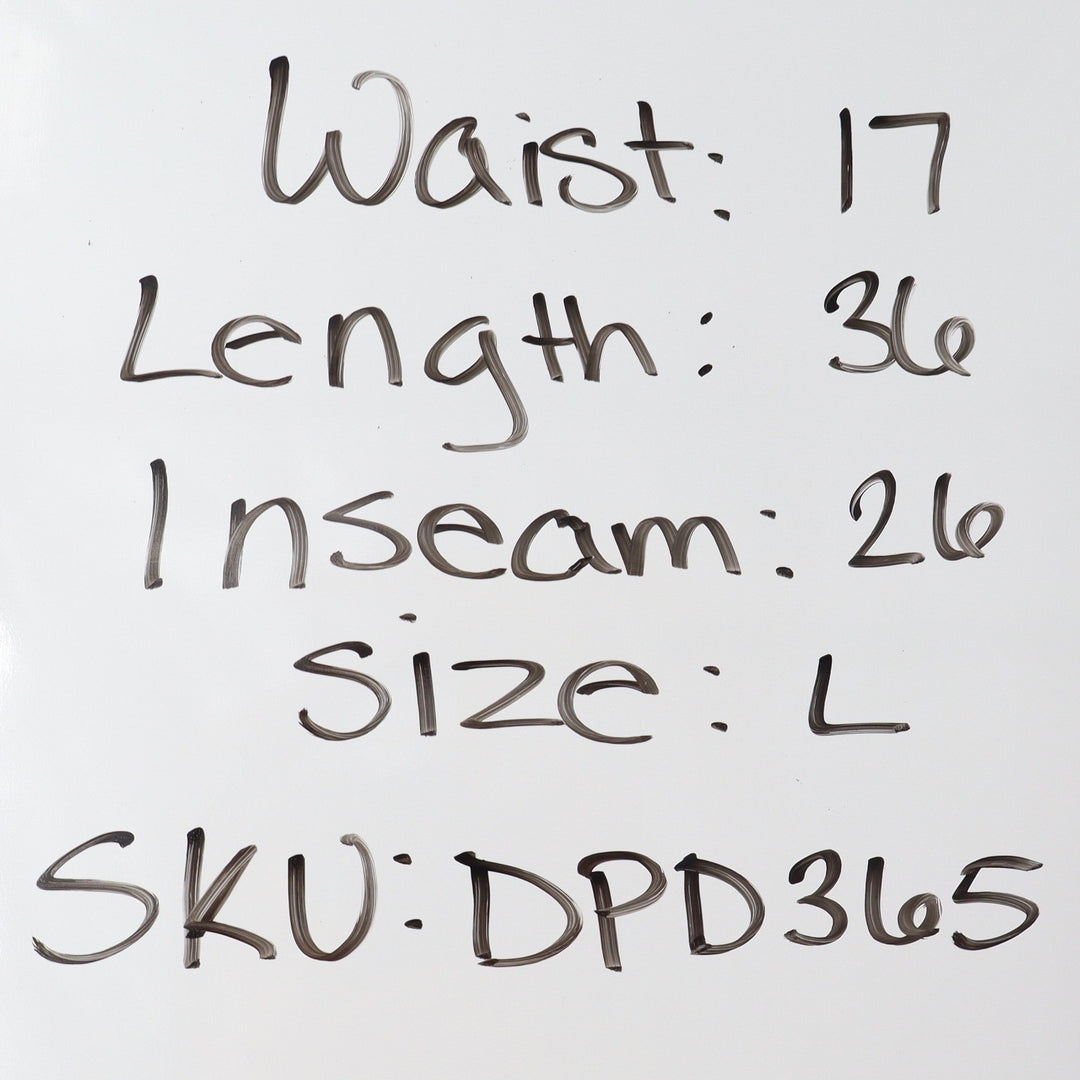 Waist: 17
Length: 36
Inseam: 26
Size: L
SKU: DPD365